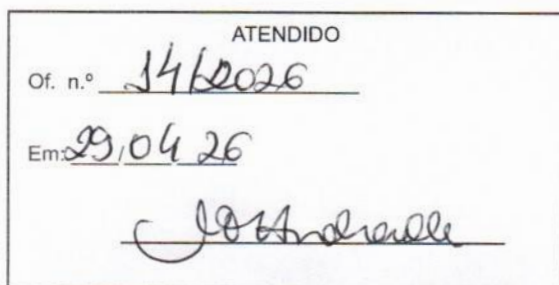 ATENDIDO
Of. n.º 14/2026
Em: 29/04 26